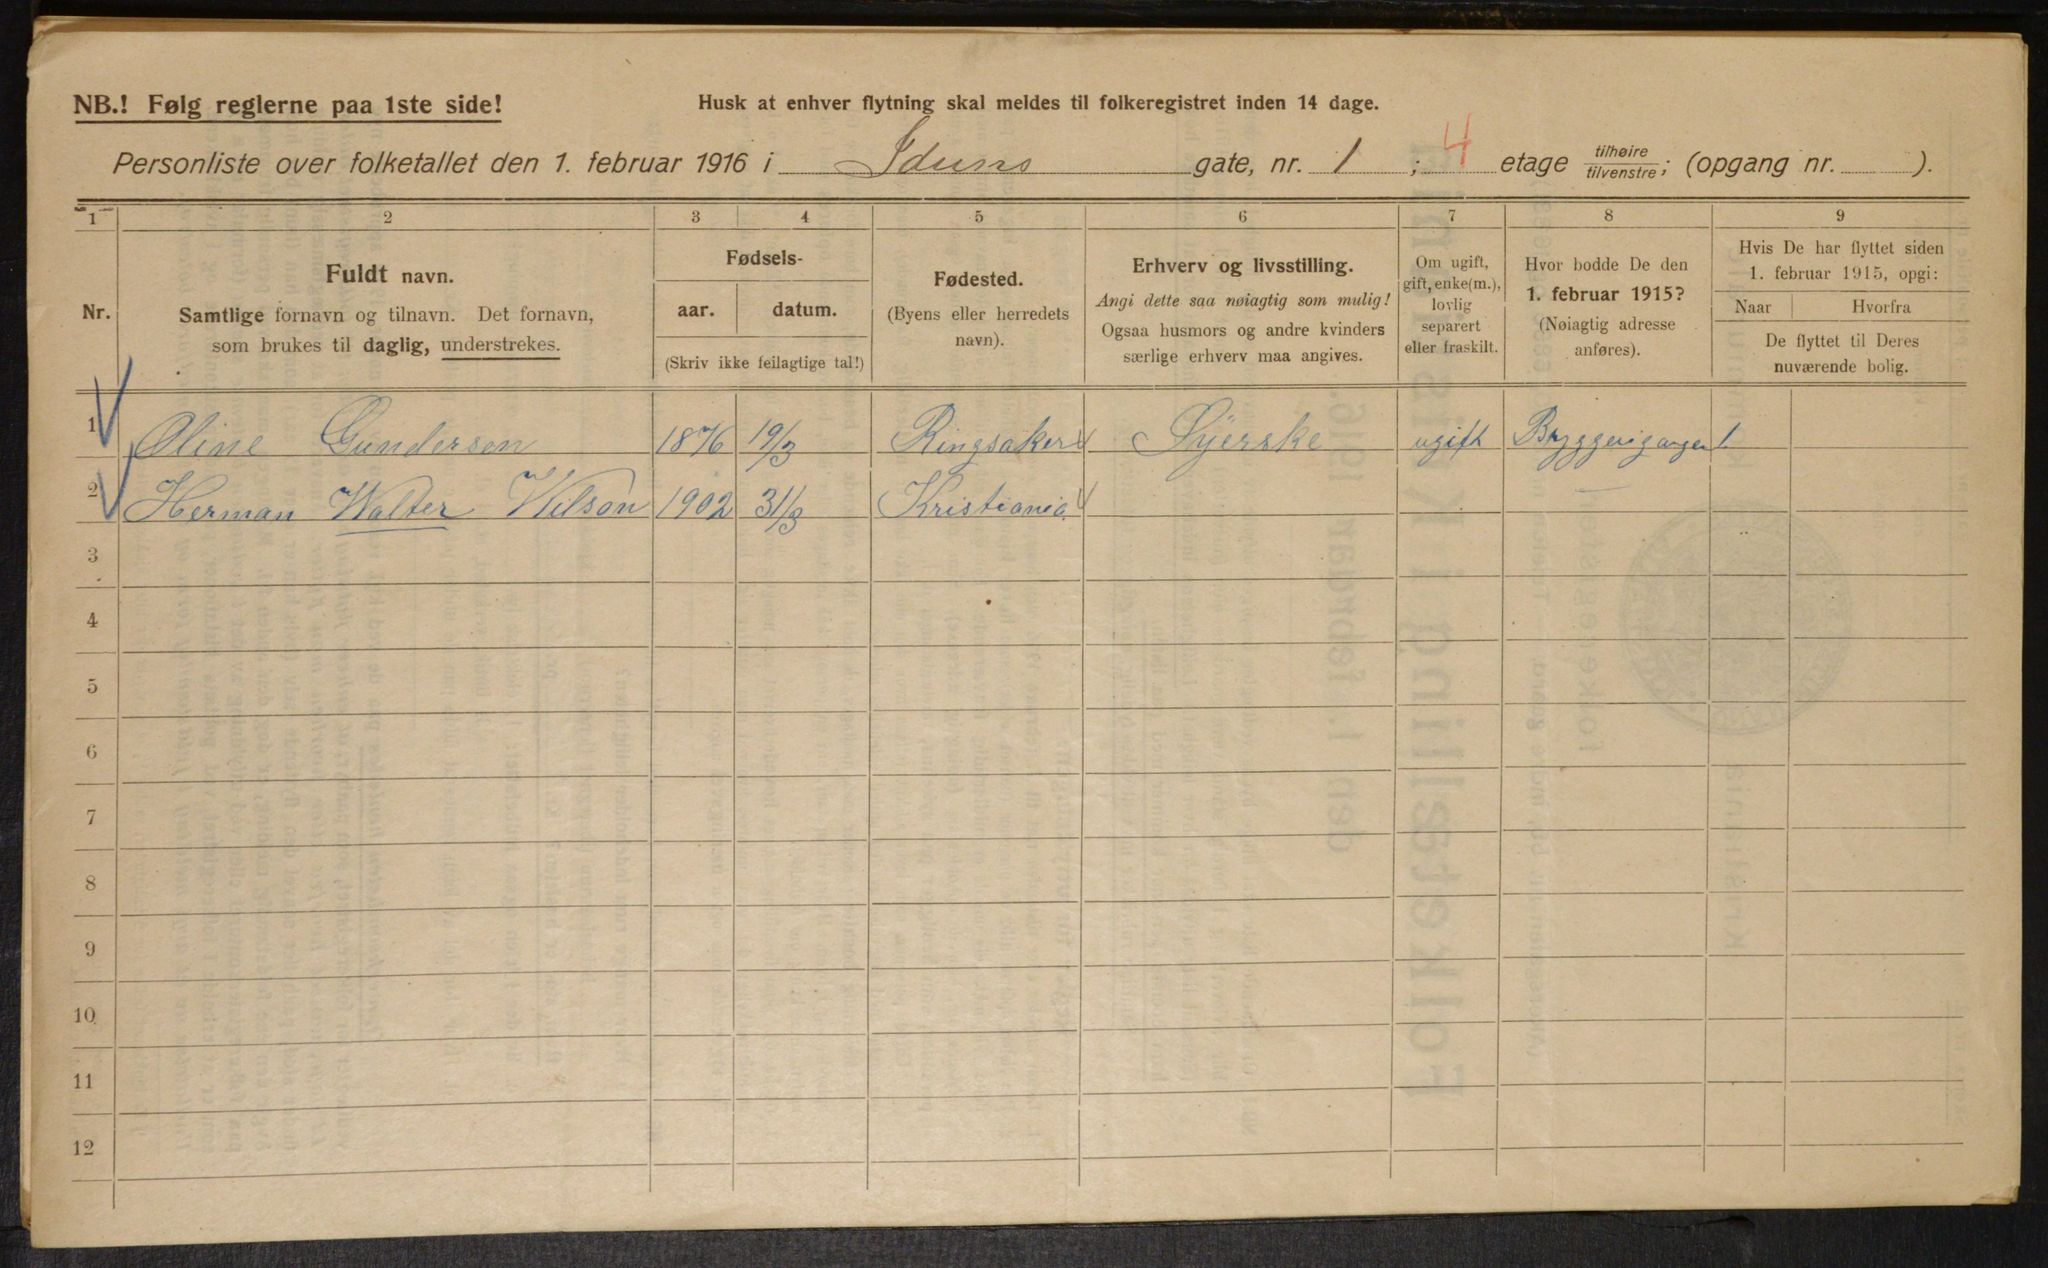 NB.! Følg reglerne paa 1ste side!
Husk at enhver flytning skal meldes til folkeregistret inden 14 dage.
Personliste over folketallet den 1. februar 1916 i Iduns gate, nr. 1 ; 4 etage tilhøire/tilvenstre; (opgang nr. ).
1 2 3 4 5 6 7 8 9
Nr.
Fuldt navn.
Samtlige fornavn og tilnavn. Det fornavn,
som brukes til daglig, understrekes.
Fødsels-
aar. datum.
(Skriv ikke feilagtige tal!)
Fødested.
(Byens eller herredets
navn).
Erhverv og livsstilling.
Angi dette saa nøiagtig som mulig!
Ogsaa husmors og andre kvinders
særlige erhverv maa angives.
Om ugift,
gift, enke(m.),
lovlig
separert
eller fraskilt.
Hvor bodde De den
1. februar 1915?
(Nøiagtig adresse
anføres).
Hvis De har flyttet siden
1. februar 1915, opgi:
Naar Hvorfra
De flyttet til Deres
nuværende bolig.
1 Oline Gundersen 1876 19/3 Ringsaker Syerske ugift Bryggerigangen 1.
2 Herman Walter Wilson 1902 31/3 Kristiania —
3
4
5
6
7
8
9
10
11
12